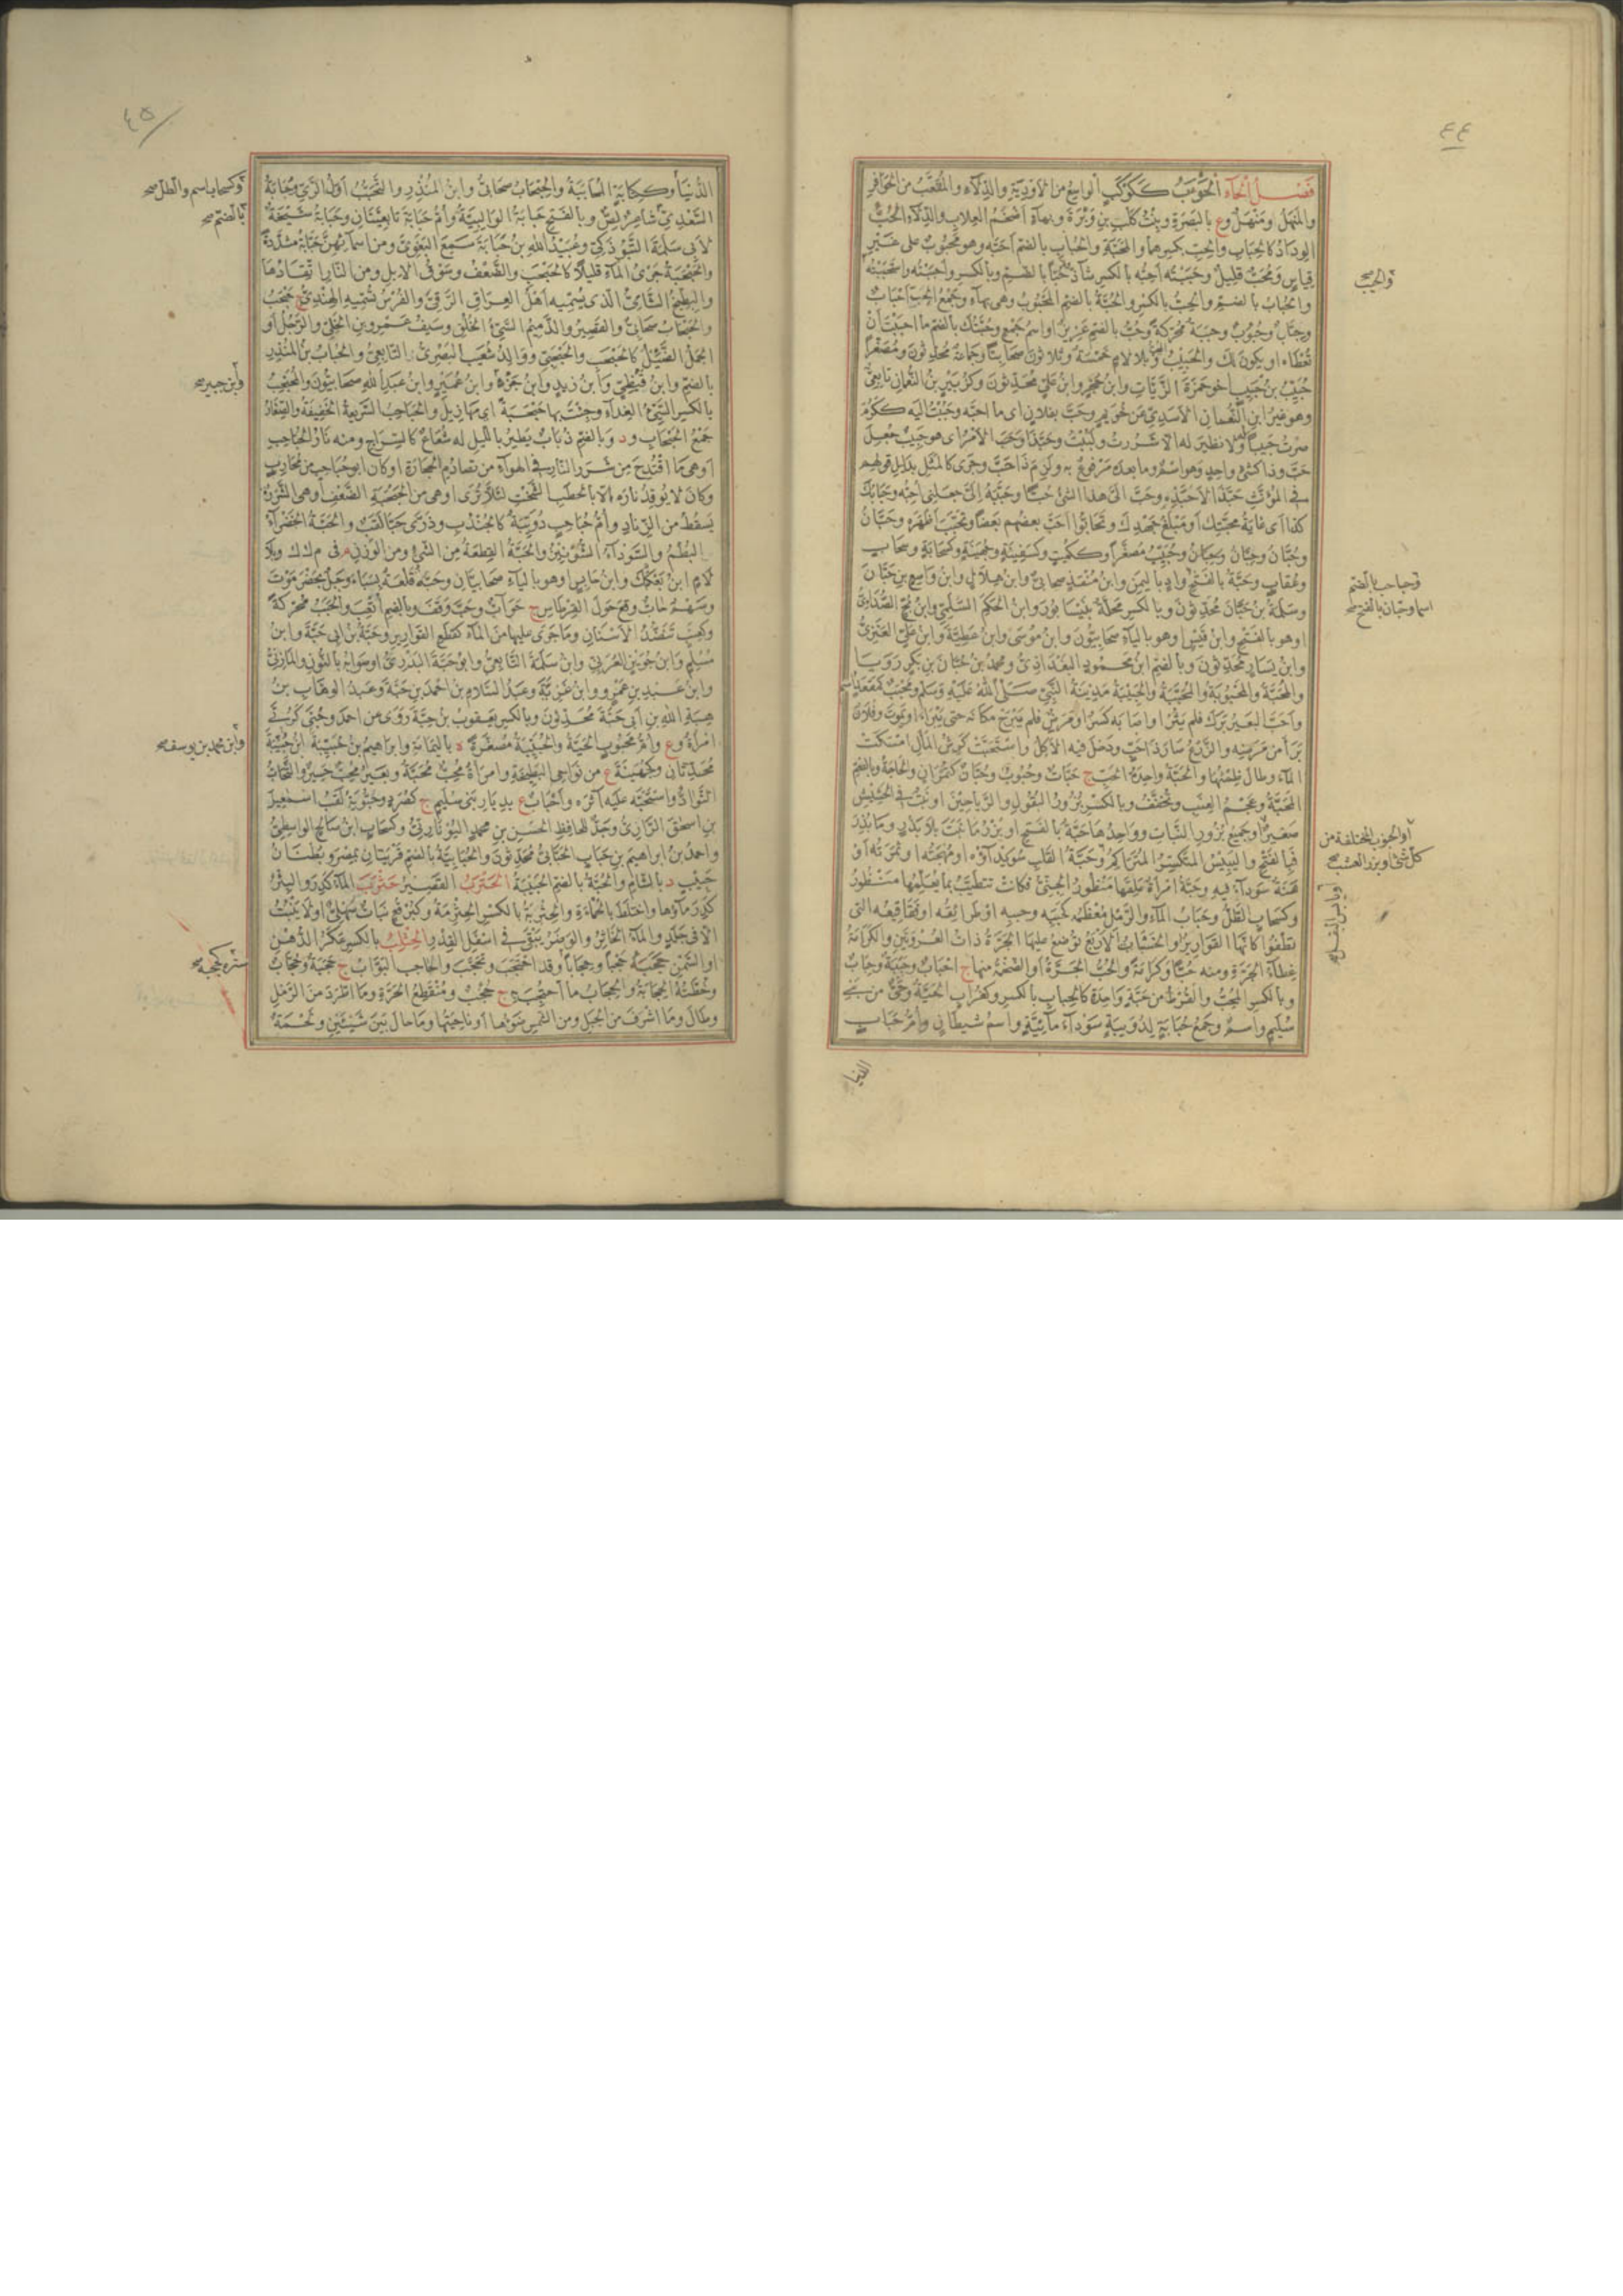 ٤٤
فصل الحاء الحوءب ككوكب الواسع من الاودية والدلاء والمقعب من الحوافر
والمنهل ومنهل وع بالبصرة وبنت كلب بن وبرة وبهاء اضخم العلاب والدلاء الحب
الوداد كالحباب والحب بكسرهما والمحبة والحباب بالضم احبه وهو محبوب على غير
قياس ومحب قليل وحببته احبه بالكسر شاذ حبا بالضم وبالكسر واحببته واستحببته
والحباب بالضم والحب بالكسر والحبة بالضم المحبوب وهي بهاء وجمع الحب احباب
وحبان وحبوب وحببة محركة وحب بالضم عزيز او اسم جمع وحبتك بالضم ما احببت ان
تعطاه او يكون لك والحبيب المحب وبلا لام خمسة وثلاثون صحابيا وجماعة محدثون ومصغرا
حبيب بن حبيب اخو حمزة الزيات وابن حجر وابن علي محدثون وكزبير بن النعمان تابعي
وهو غير ابن النعمان الاسدي عن خريم وحب بفلان اي ما احبه وحببت اليه ككرم
صرت حبيبا ولا نظير له الا شررت ولببت وحبذا وحب الامر اي هو حبيب جعل
حب وذا كشئ واحد وهو اسم وما بعده مرفوع به ولزم ذا حب وجرى كالمثل بدليل قولهم
في المؤنث حبذا لا حبذه وحب الي هذا الشئ حبا وحببه الي جعلني احبه وحبابك
كذا اي غاية محبتك او مبلغ جهدك وتحابوا احب بعضهم بعضا وتحبب اظهره وحبان
وحبان وحبان وحبان وحبيب مصغرا وككميت وكسفينة وجهينة وكسحابة وسحاب
وعقاب وحبة بالفتح واد باليمن وابن منقذ صحابي وابن هلال وابن واسع بن حبان
وسلمة بن حبان محدثون وبالكسر محلة بنيسابور وابن الحكم السلمي وابن بح الصدائي
او هو بالفتح وابن قيس او هو بالياء صحابيون وابن موسى وابن عطية وابن علي العنزي
وابن يسار محدثون وبالضم ابن محمود البغدادي ومحمد بن حبان بن بكر رويا
والمحبة والمحبوبة والمحببة والحبيبة مدينة النبي صلى الله عليه وسلم ومحبب كمقعد اسم
واحب البعير برك فلم يثر او اصابه كسر او مرض فلم يبرح مكانه حتى يبرا او يموت وفلان
برا من مرضه والزرع صار ذا حب ودخل فيه الاكل واستحبت كرش المال امسكت
الماء وطال ظمؤها والحبة واحدة الحب ج حبات وحبوب وحبان كتمران والحاجة وبالضم
المحبة وعجم العنب وتخفف وبالكسر بزور البقول والرياحين او نبت في الحشيش
صغير او جميع بزور النبات وواحدها حبة بالفتح او بزر ما نبت بلا بذر وما بذر
فبالفتح واليبيس المتكسر المتراكم وحبة القلب سويداؤه او مهجته او ثمرته او
هنة سوداء فيه وحبة امراة علقها منظور الجني فكانت تتطبب بما يعلمها منظور
وكسحاب الطل وحباب الماء والرمل معظمه كحببه وحبه او طرائقه او فقاقيعه التي
تطفو كانها القوارير والحب الجرة او الضخمة منها او الخشبات الاربع توضع عليها الجرة ذات العروتين والكرامة
غطاء الجرة ومنه حبا وكرامة والحب الجرة او الضخمة منها ج احباب وحببة وحباب
وبالكسر المحب والقرط من حبة واحدة كالحباب بالكسر وكغراب الحية وحي من بني
سليم واسم وجمع حبابة لدويبة سوداء مائية واسم شيطان وام حباب
الدنيا
والحبب صح
وحباحب بالضم
اسما وحبان بالفتح صح
او الحبوب المختلفة من
كل شئ او بزر العشب صح
او يابس البقل صح
٤٥
الدنيا وككتابة المحابة والحبحاب صحابي وابن المنذر والتحبب اول الري وحبابة
السعدي شاعر لص وبالفتح حبابة الوالبية وام حبابة تابعيتان وحبابة شيخة
لابي سلمة التبوذكي وعبيد الله بن حبابة سمع البغوي ومن اسمائهن حبابة مشددة
والحبحبة جري الماء قليلا كالحبحب والضعف وسوق الابل ومن النار اتقادها
والبطيخ الشامي الذي يسميه اهل العراق الرقي والفرس تسميه الهندي ج حبحب
والحبحاب صحابي والقصير والدميم السيئ الخلق وسيف عمرو بن الخلي والرجل او
الجمل الضئيل كالحبحب والحبحبي ووالد شعيب البصري التابعي والحباب بن المنذر
بالضم وابن قيظي وابن زيد وابن جزء وابن عمير وابن عبد الله صحابيون والمحبحب
بالكسر السيئ الغذاء وجئت بها حبحبة اي مهازيل والحباحب السريعة الخفيفة والصغار
جمع الحبحاب ود وبالضم ذباب يطير بالليل له شعاع كالسراج ومنه نار الحباحب
او هي ما اقتدح من شرر النار في الهواء من تصادم الحجارة او كان ابو حباحب من محارب
وكان لا يوقد ناره الا بالحطب الشخت لئلا ترى او هي من الحبحبة الضعف او هي الشررة
يسقط من الزناد وام حباحب دويبة كالجندب وذرى حبا لقب والحبة الخضراء
البطم والسوداء الشونيز والحبة القطعة من الشئ ومن الوزن م في م ك ك وبلا
لام ابن بعكك وابن حابس او هو بالياء صحابيان وحبة قلعة بسباء وجبل بحضرموت
وسهم حاب وقع حول القرطاس ج حواب وحب وقف وبالضم اتعب والحبب محركة
وكعنب تنضد الاسنان وما جرى عليها من الماء كقطع القوارير وحبة بن ابي حبة وابن
مسلم وابن جوين العرني وابن سلمة التابعي وابو حبة البدري او صوابه بالنون والمازني
وابن عبد بن عمرو وابن غزية وعبد السلام بن احمد بن حبة وعبد الوهاب بن
هبة الله بن ابي حبة محدثون وبالكسر يعقوب بن حبة روى عن احمد وحبى كربى
امراة وع وام محبوب الحية والحبيبة مصغرة ة باليمامة وابراهيم بن حبيبة ابن حبيبة
محدثان وكجهينة ع من نواحي البطيحة وامراة محب محبة وبعير محب حسير والتحاب
التواد واستحبه عليه اثره واحباب ع بديار بني سليم ج كصرد وحبوبة لقب اسمعيل
بن اسحق الرازي وجد للحافظ الحسن بن محمد اليونارتي وكسحاب ابن صالح الواسطي
واحمد بن ابراهيم بن حباب الحبابي محدثون والحبابية بالضم قريتان بمصر وبطنان
حبيب د بالشام والحبة بالضم الحبيبة الحترب القصير حثربت الماء كدر والبئر
كدر ماؤها واختلط بالحماءة والحثربة بالكسر الحثرمة وكبرقع نبات سهلي او لا ينبت
الا في جلد والماء الخاثر والوضر يبقى في اسفل القدر الحثلب بالكسر عكر الدهن
او السمن حجبه حجبا وحجابا وقد احتجب وتحجب والحاجب البواب ج حجبة وحجاب
وخطته الحجابة والحجاب ما احتجب به ج حجب ومنقطع الحرة وما اطرد من الرمل
وطال وما اشرف من الجبل ومن الشمس ضوؤها او ناحيتها وما حال بين شيئين ولحمة
وكسحاب اسم والطل صح
بالضم صح
وابن جبير صح
وابن محمد بن يوسف صح
ستره كحجبه صح